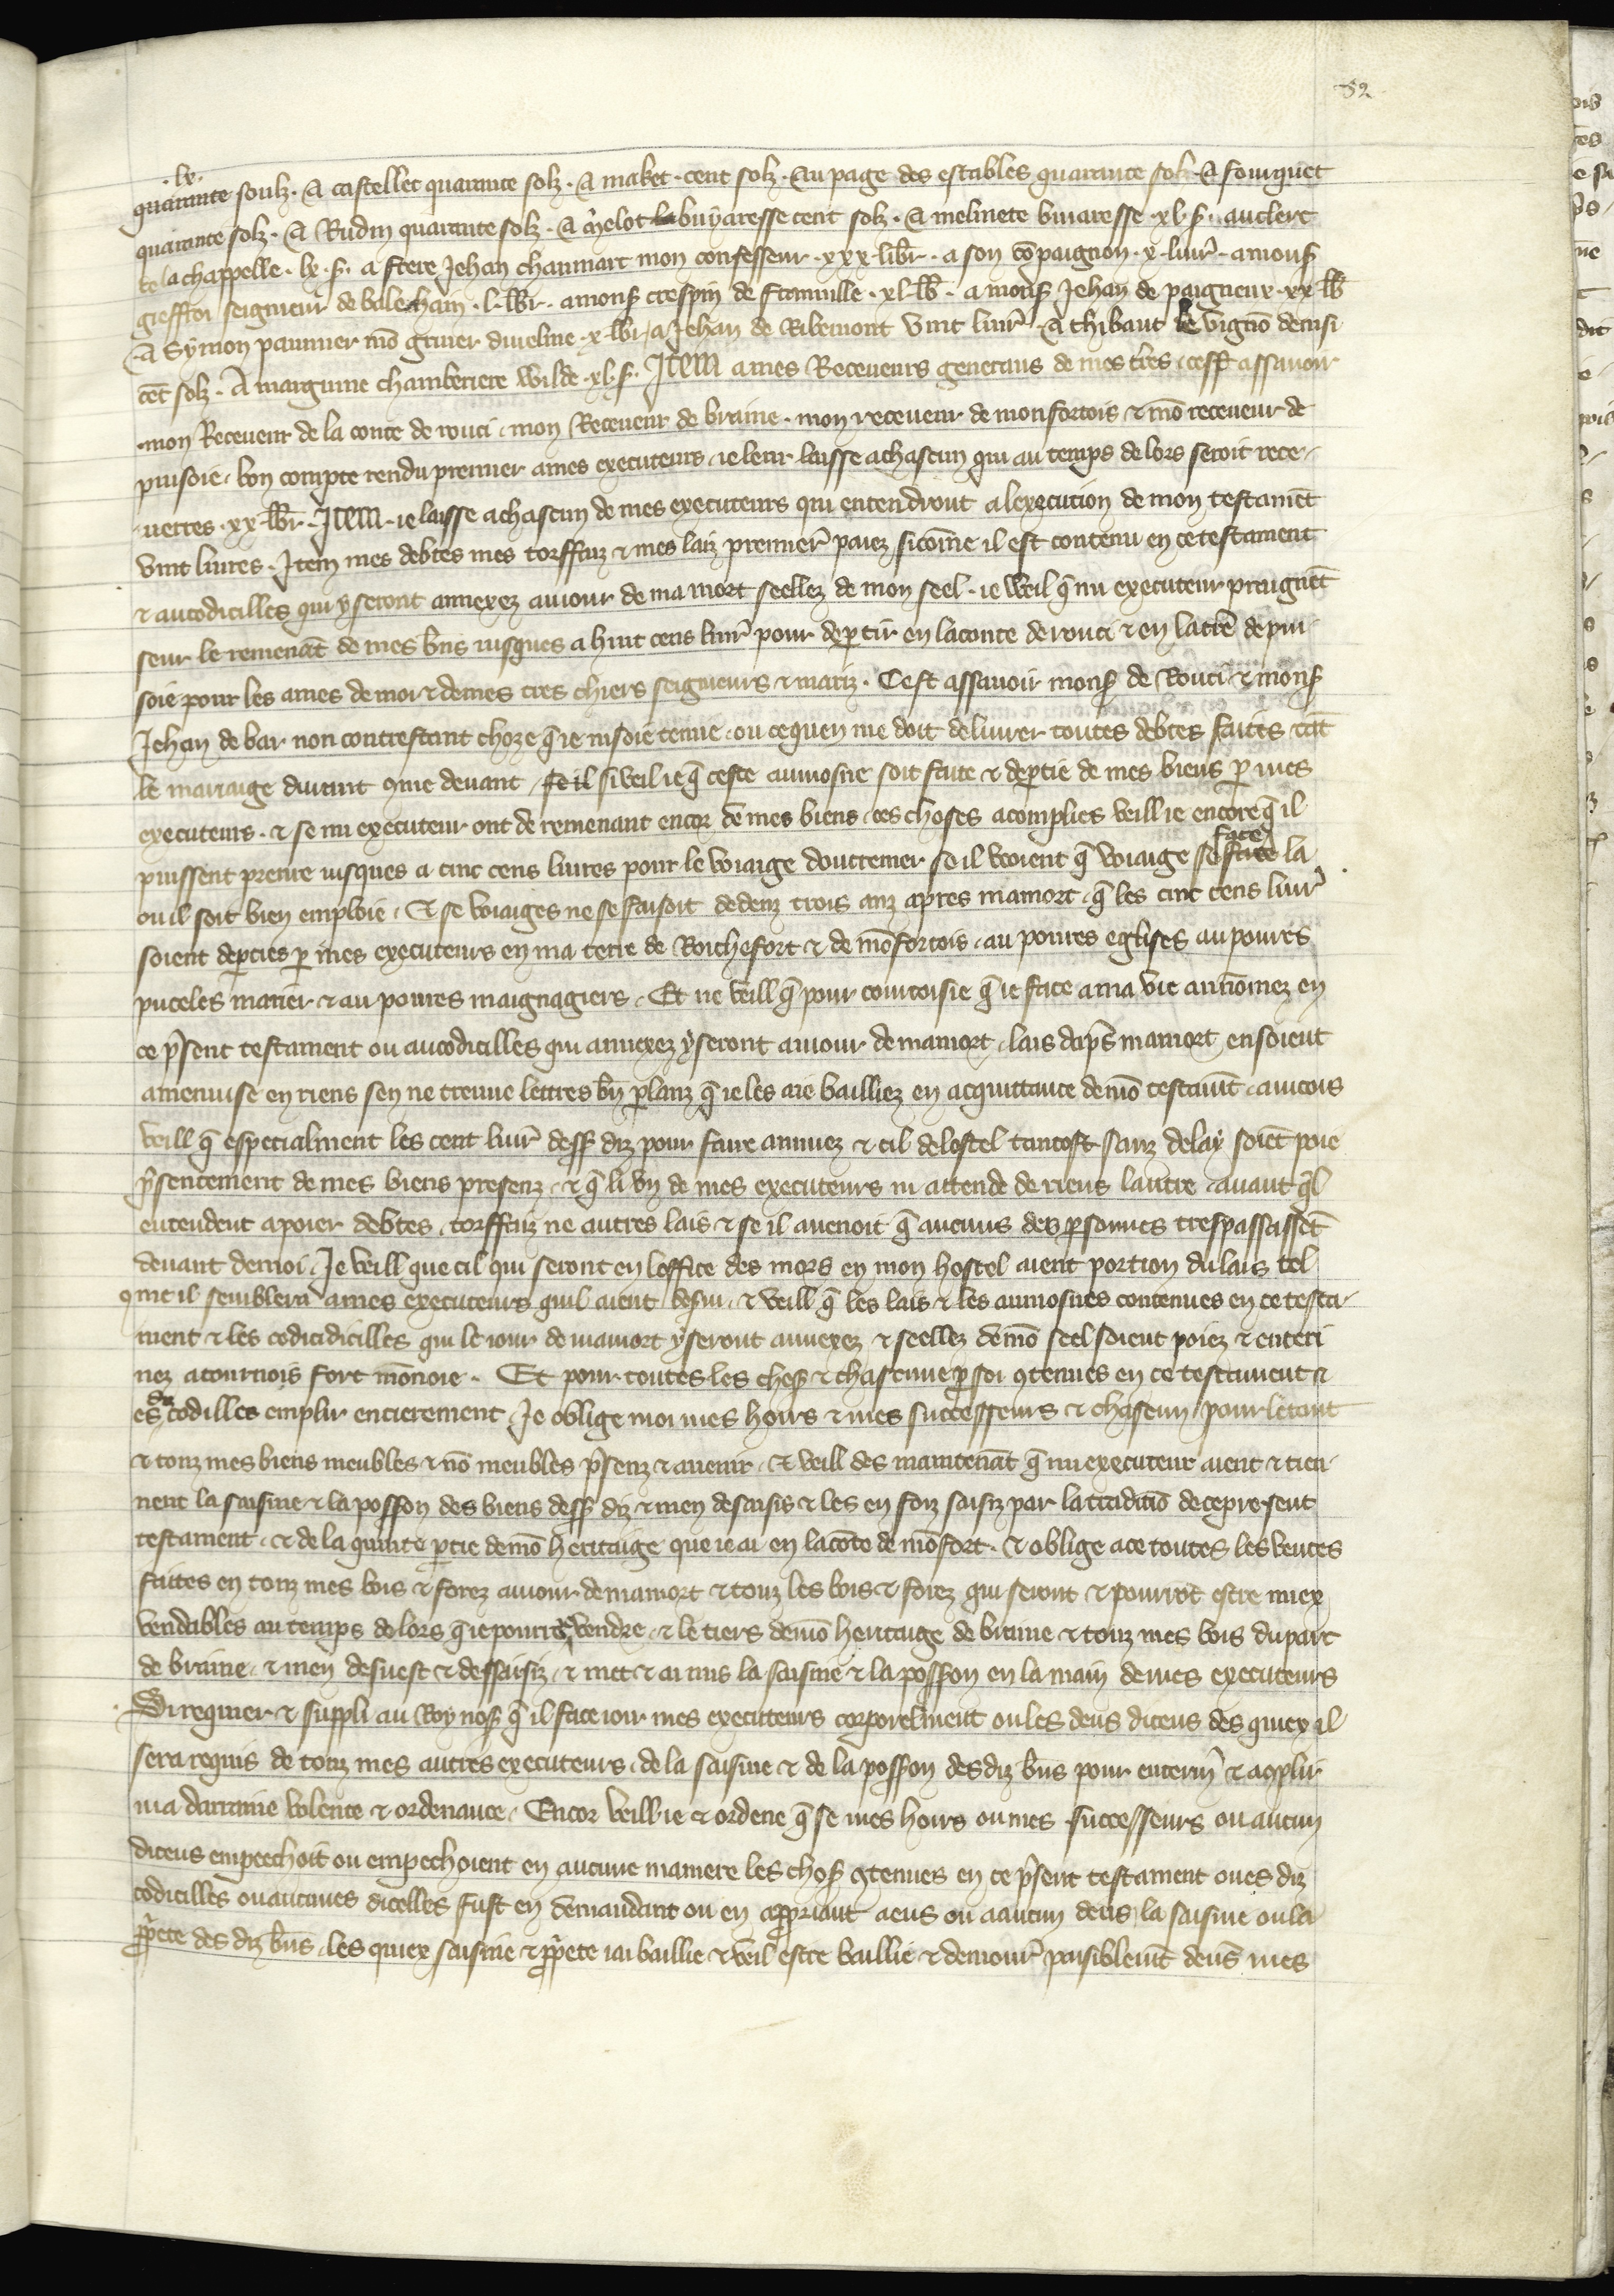 82
.lx.
quarante soulz. A castellet quarante solz. A maket. cent solz. Au page des estables quarante solz. A fouquet
quarante solz. A Rudin quarante solz. A mͥelot la buyaresse cent solz. A melinete buiaresse .xl. s. au clerc
de la chappelle. lx. s. a frere Jehan chaumart mon confesseur .xxx. libr. a son cōpaignon .x. liur̄. a mons̄
gieffroi seigneur de balehain .l. lbr. a mons̄ crespin de framuille .xl. lb̄. a mons̄ Jehan de paigneux .xx. lb̄
A Symon paumier mō gruier diueline .x. lbr. a Jehan de Ribemont vint liur̄. A thibaut le vignō demisi
cēt solz. A marguine chamberiere wilde .xl. s. Item a mes Receueurs generaus de mes t̄res. cest assauoir
mon Receueur de la conte de rouci. mon Receueur de braine. mon receueur de monfortois & mō receueur de
puisoie. bon compte rendu premier a mes executeurs. ie leur laisse a chascun qui au temps de lors seroit rece
uerres .xx. lbr̄. Item. ie laisse a chascun de mes executeurs qui entendront a lexecution de mon testamēt
vint liures. Item mes debtes mes torffaiz & mes laiz premier̄ paiez sicōme il est contenu en ce testament
& au codicilles qui y seront annexez au iour de ma mort seellez de mon seel. ie weil q̄ mi executeur praignēt
seur le remenāt de mes b̄ns iusques a huit cens liur̄ pour dep̱tir en la conte de rouci & en la t̄re de pui
soie pour les ames de moi & de mes tres chiers seigneurs & mariz. Cest assauoir mons̄ de Rouci & mons̄
Jehan de bar non contrestant choze q̄ ie insoie tenue. ou ce quen me doit deliurer toutes debtes faites tāt
le mariaige durant ꝯme deuant. se il si weil ie q̄ ceste aumosne soit faite & dep̱tie de mes biens p̱ mes
executeurs. & se mi executeur ont de remenant encor de mes biens. ces choses acomplies veill ie encore q̄ il
puissent prenre iusques a cinc cens liures pour le voiaige doutremer se il veoient q̄ voiaige se face la
ou il soit bien emploie. Et se voiaiges ne se faisoit dedenz trois anz apres ma mort. q̄ les cinc cens liur̄
soient dep̱ties p̱ mes executeurs en ma terre de Roichefort & de mōfortois. au poures eglises au poures
puceles marier & au poures maignagiers. Et ne veill q̄ pour courtoisie q̄ ie face a ma vie au nōmez en
ce p̄sent testament ou au codicilles qui annexez y seront au iour de ma mort. lais dap̄s ma mort en soient
amenuise en riens sen ne treuue lettres b̄n p̱lanz q̄ ie les aie bailliez en acquittance de mō testamt̄. aincois
veill q̄ especialment les cent liur̄ dess̄ diz pour faire anniuez & cil de lostel tantost sanz delay soiēt paie
p̄sentement de mes biens presenz. & q̄ li vn de mes executeurs ni attende de riens lautre. auant q̄l
entendent a poier debtes. torffaiz ne autres lais & se il auenoit q̄ aucuns des p̱sonnes trespassassēt
deuant de moi. Je veill que cil qui seront en loffice des mors en mon hostel aient portion du lais tel
ꝯme il semblera a mes executeurs quil aient des̱ui. & veill q̄ les lais & les aumosnes contenues en ce testa
ment & les codicidicilles qui le iour de ma mort y seront annexez & seellez de mō seel soient poiez & enteri
nez a tournois fort mōnoie. Et pour toutes les chos̄ & chascune p̱ soi ꝯtenues en ce testament &
es codilles emplir entierement. Je oblige moi mes hoirs & mes successeurs & chascun pour le tout
& touz mes biens meubles & nō meubles p̄senz & auenir. & veill des maintenāt q̄ mi executeur aient & tien
nent la saisine & la possꝯn des biens dess̄ diz & men desaisis & les en foiz saisiz par la tradictiō de ce present
testament. & de la quinte p̱tie de mō heritaige que ie ai en la cōte de mōfort. & oblige a ce toutes les ventes
faites en touz mes bois & forez au iour de ma mort & touz les bois & forez qui seront & pourrōt estre miex
vendables au temps de lors q̄ ie pourroie vendre. & le tiers de mō heritaige de braine & touz mes bois du parc
de braine. & men desuest & dessaisiz. & met & ai mis la saisine & la possꝯn en la main de mes executeurs
Si requier & suppli au Roy nos̄ q̄ il face ioir mes executeurs corporelment ou les deus diceus des quiex il
sera requis de touz mes autres executeurs. de la saisine & de la possꝯn des diz b̄ns pour enterin̄ & aꝯplir
ma darraine volente & ordenance. Encor veill ie & ordene q̄ se mes hoirs ou mes successeurs ou aucun
diceus empeechoit ou empechoient en aucune maniere les chos̄ ꝯtenues en ce p̄sent testament ou es diz
codicilles ou aucunes dicelles fust en demandant ou en app̱riant a eus ou a aucun deus la saisine ou la
p̱p̱ete des diz b̄ns. les quiex saisine & p̱p̱ete iai baillie & veil estre baillie & demour̄ paisiblemt̄ deuē mes